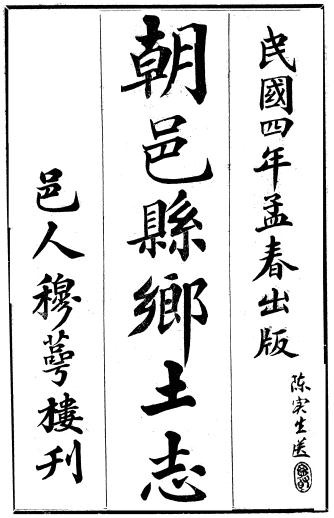 民國四年孟春出版
陈实生送
朝邑縣鄉土志
邑人穆蕚樓刋